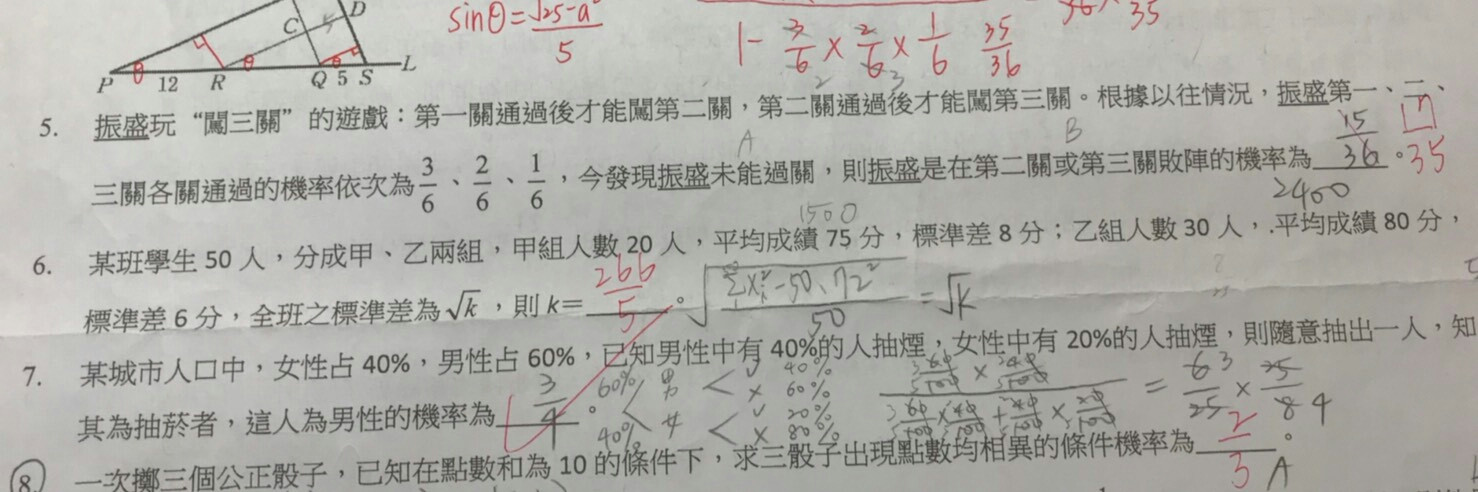 C D
P 12 R Q 5 S L
θ θ θ
sinθ = √25-a² / 5
1 - 3/6 × 2/6 × 1/6 35/36
35
5. 振盛玩“闖三關”的遊戲：第一關通過後才能闖第二關，第二關通過後才能闖第三關。根據以往情況，振盛第一、二、
A B
三關各關通過的機率依次為 3/6、2/6、1/6，今發現振盛未能過關，則振盛是在第二關或第三關敗陣的機率為 15/36 。 17/35
1500 2400
6. 某班學生 50 人，分成甲、乙兩組，甲組人數 20 人，平均成績 75 分，標準差 8 分；乙組人數 30 人，平均成績 80 分，
標準差 6 分，全班之標準差為 √k ，則 k= 266/5 。 = √k
7. 某城市人口中，女性占 40%，男性占 60%，已知男性中有 40%的人抽煙，女性中有 20%的人抽煙，則隨意抽出一人，知
其為抽菸者，這人為男性的機率為 3/4 。
60% 男 < ✓ 40% × 60%
40% 女 < ✓ 20% × 80%
= 6/25 × 25/8 3 4
8. 一次擲三個公正骰子，已知在點數和為 10 的條件下，求三骰子出現點數均相異的條件機率為 2/3 。
A